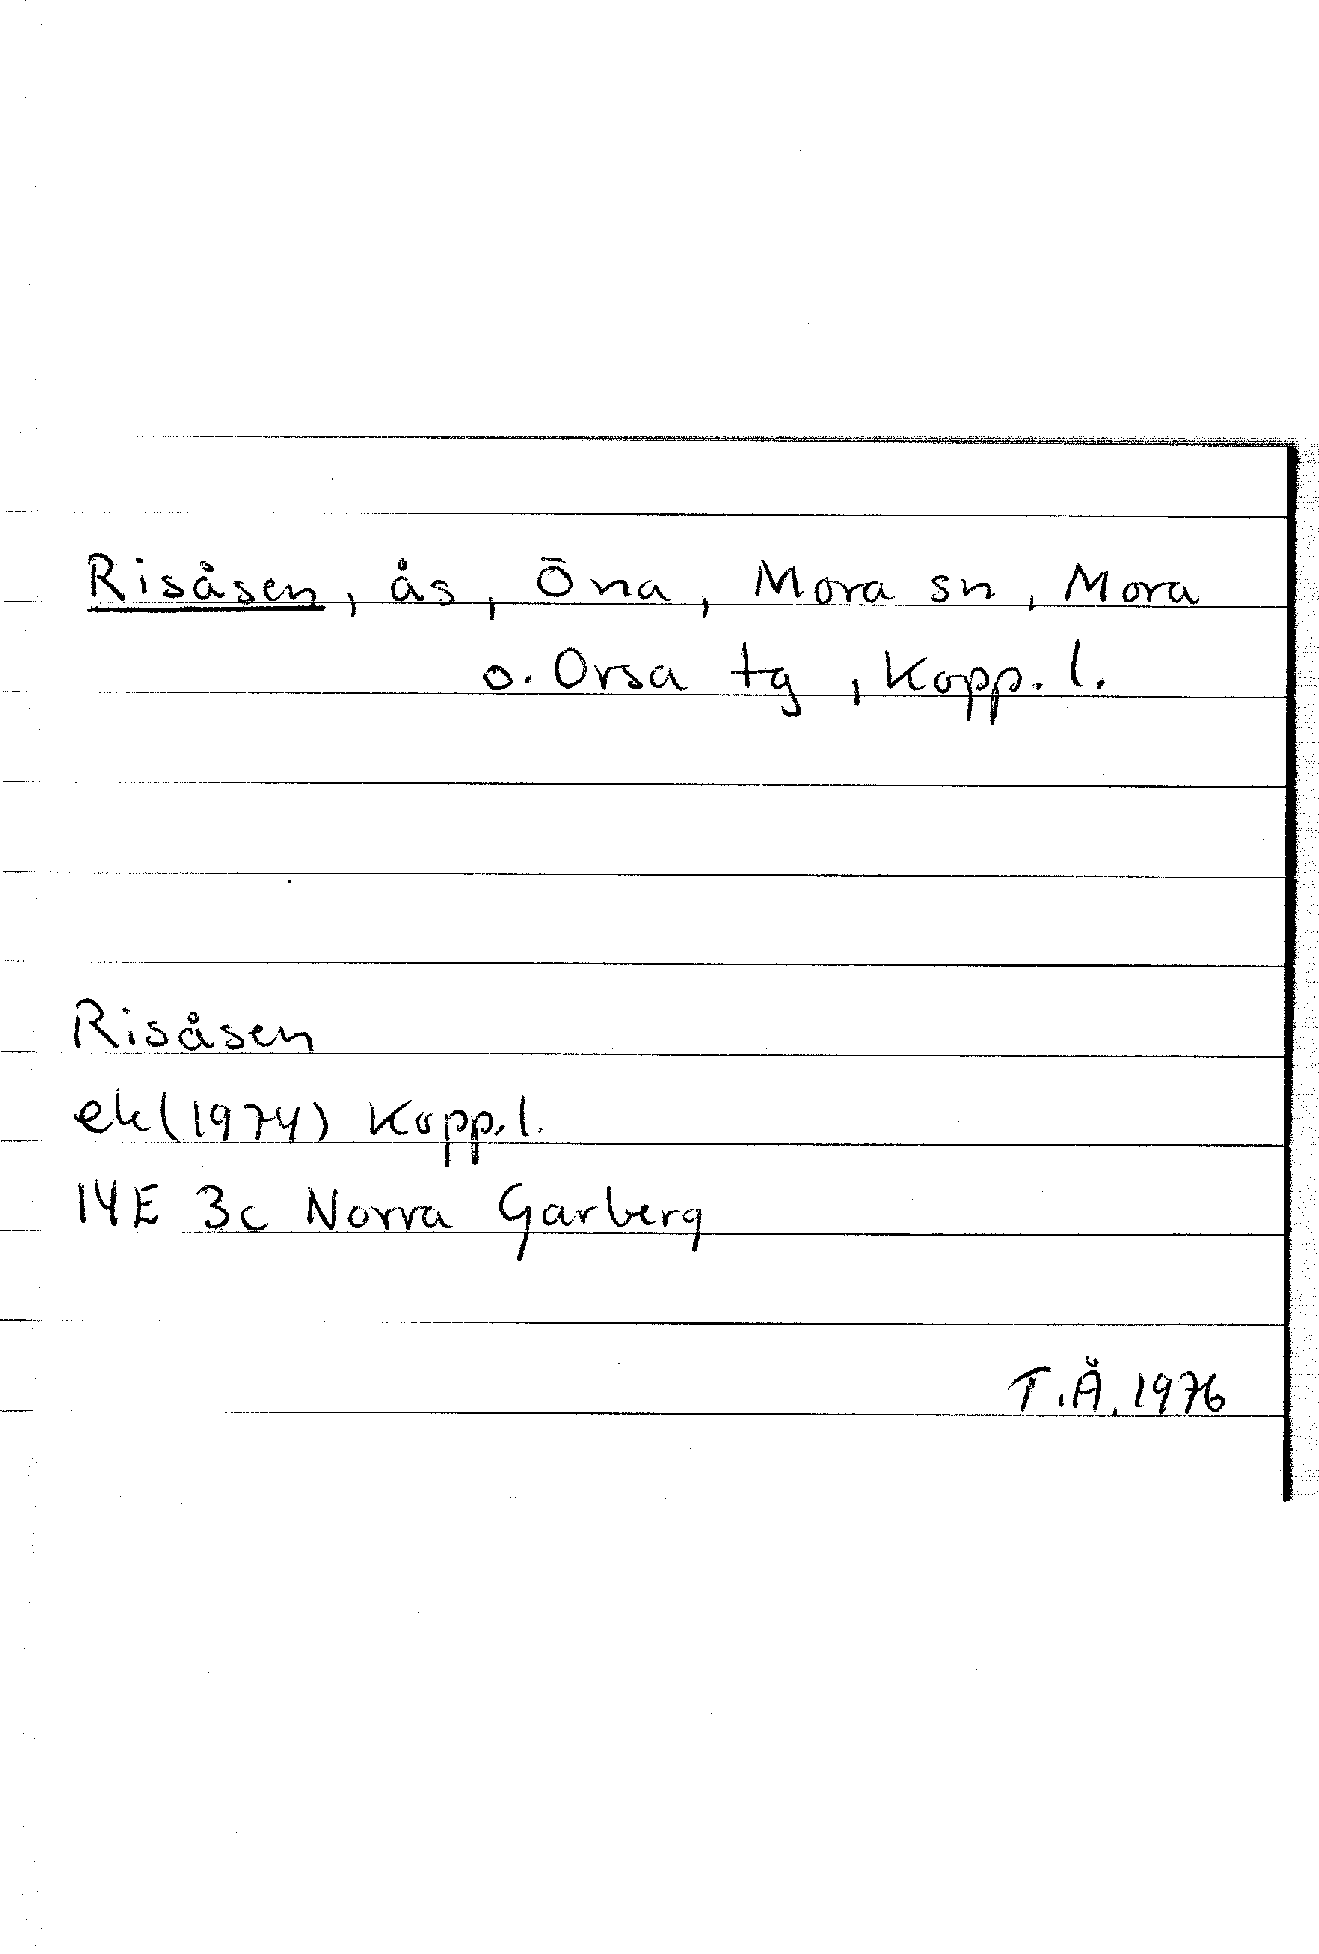 Risåsen, ås, Öna, Mora sn, Mora
o. Orsa tg, Kopp. l.
Risåsen
ek(1974) Kopp. l.
14E 3c Norra Garberg
T.Å. 1976